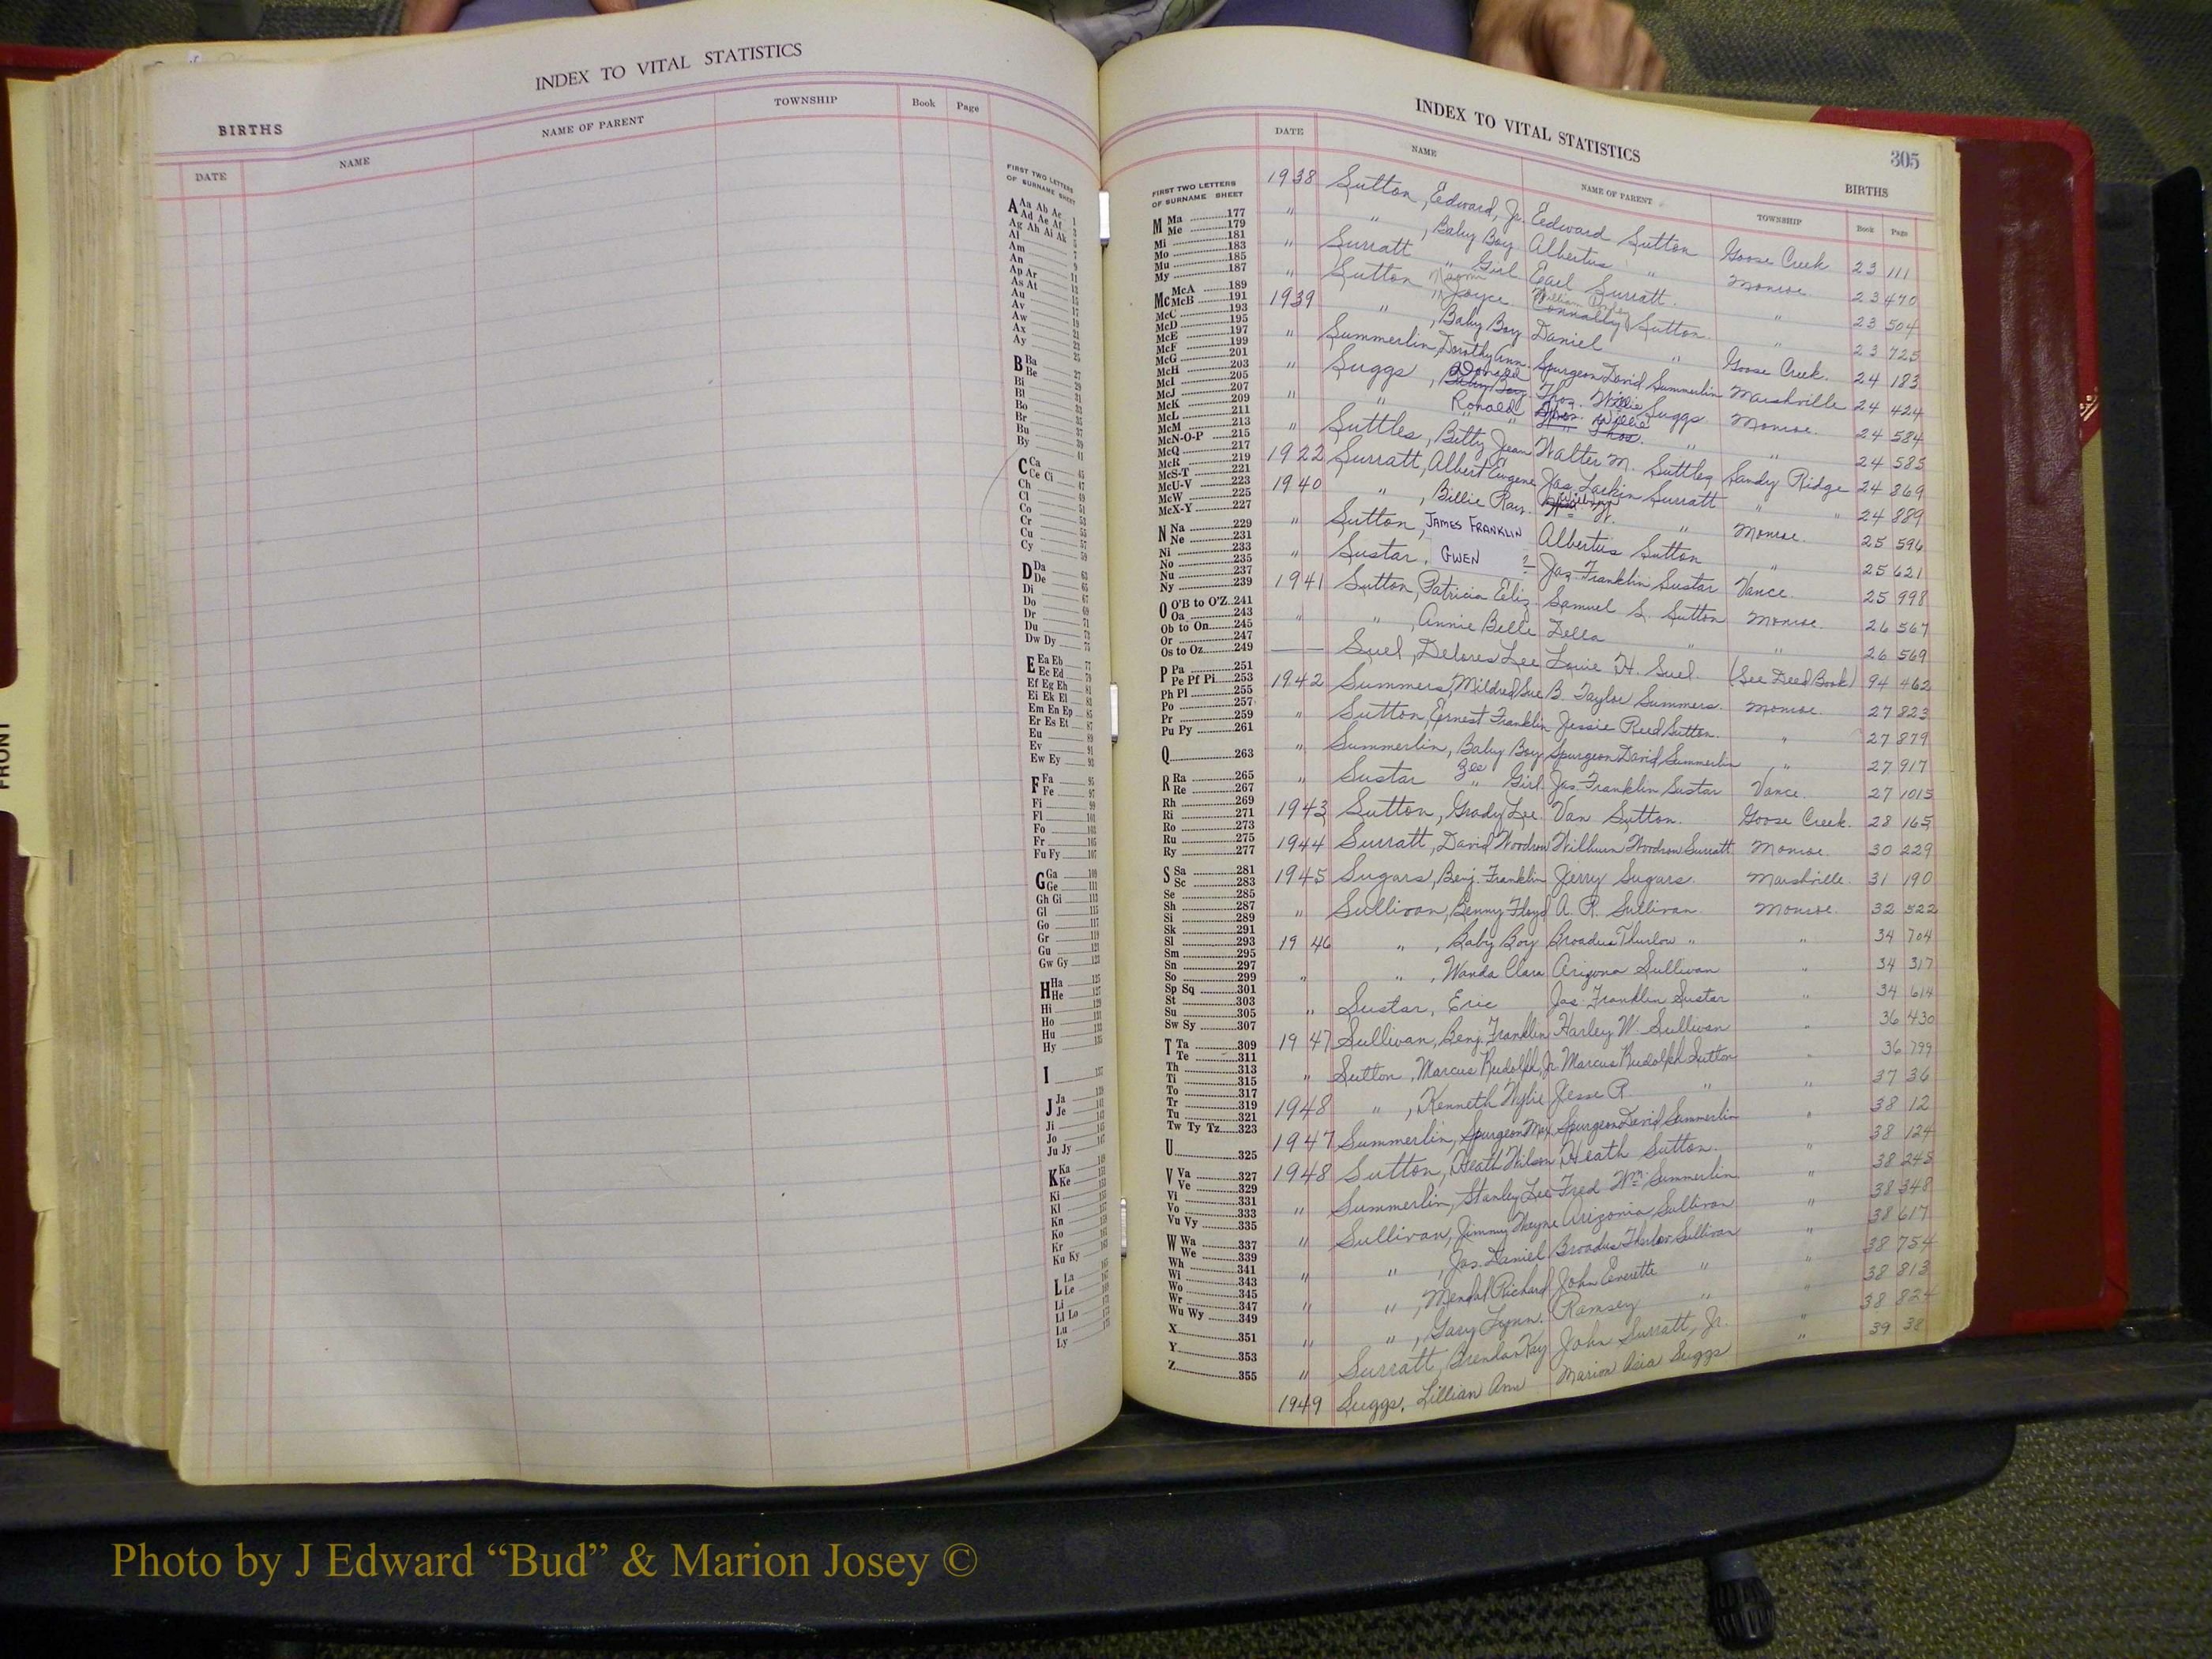 INDEX TO VITAL STATISTICS
BIRTHS
DATE NAME NAME OF PARENT TOWNSHIP Book Page
FIRST TWO LETTERS
OF SURNAME SHEET
A Aa Ab Ac 1
Ad Ae Af
Ag Ah Ai Ak
Al
Am
An
Ap Ar
As At
Au
Av
Aw
Ax
Ay
B Ba
Be
Bi
Bl
Bo
Br
Bu
By
C Ca
Ce Ci
Ch
Cl
Co
Cr
Cu
Cy
D Da
De
Di
Do
Dr
Du
Dw Dy
E Ea Eb
Ec Ed
Ef Eg Eh
Ei Ek El
Em En Ep
Er Es Et
Eu
Ev
Ew Ey
F Fa
Fe
Fi
Fl
Fo
Fr
Fu Fy
G Ga
Ge
Gh Gi
Gl
Go
Gr
Gu
Gw Gy
H Ha
He
Hi
Ho
Hu
Hy
I
J Ja
Je
Ji
Jo
Ju Jy
K Ka
Ke
Ki
Kl
Kn
Ko
Kr
Ku Ky
L La
Le
Li
Ll Lo
Lu
Ly
FRONT
INDEX TO VITAL STATISTICS 305
BIRTHS
DATE NAME NAME OF PARENT TOWNSHIP Book Page
FIRST TWO LETTERS
OF SURNAME SHEET
M Ma 177
Me 179
Mi 181
Mo 183
Mu 185
My 187
Mc McA 189
McB 191
McC 193
McD 195
McE 197
McF 199
McG 201
McH 203
McI 205
McJ 207
McK 209
McL 211
McM 213
McN-O-P 215
McQ 217
McR 219
McS-T 221
McU-V 223
McW 225
McX-Y 227
N Na 229
Ne 231
Ni 233
No 235
Nu 237
Ny 239
O O'B to O'Z 241
Oa 243
Ob to On 245
Or 247
Os to Oz 249
P Pa 251
Pe Pf Pi 253
Ph Pl 255
Po 257
Pr 259
Pu Py 261
Q 263
R Ra 265
Re 267
Rh 269
Ri 271
Ro 273
Ru 275
Ry 277
S Sa 281
Sc 283
Se 285
Sh 287
Si 289
Sk 291
Sl 293
Sm 295
Sn 297
So 299
Sp Sq 301
St 303
Su 305
Sw Sy 307
T Ta 309
Te 311
Th 313
Ti 315
To 317
Tr 319
Tu 321
Tw Ty Tz 323
U 325
V Va 327
Ve 329
Vi 331
Vo 333
Vu Vy 335
W Wa 337
We 339
Wh 341
Wi 343
Wo 345
Wr 347
Wu Wy 349
X 351
Y 353
Z 355
1938 Sutton, Edward, Jr. Edward Sutton Goose Creek 23 111
" " , Baby Boy Albertus " Monroe 23 470
" Surratt " Girl Earl Surratt " 23 504
" Sutton Naomi Joyce William Connally Sutton " 23 725
1939 " , Baby Boy Daniel " Goose Creek 24 183
" Summerlin, Dorothy Ann Spurgeon David Summerlin Marshville 24 424
" Suggs, Donald Thos. Willie Suggs Monroe 24 584
" " Ronald " " " 24 585
" Suttles, Betty Jean Walter M. Suttles Sandy Ridge 24 869
1922 Surratt, Albert Eugene Jas. Larkin Surratt " " 24 889
1940 " , Billie Ray " Monroe 25 596
" Sutton, JAMES FRANKLIN Albertus Sutton " 25 621
" Sustar, GWEN ? Jas. Franklin Sustar Vance 25 998
1941 Sutton, Patricia Eliz. Samuel S. Sutton Monroe 26 567
" " , Annie Belle Della " " 26 569
Suel, Delores Lee Louie H. Suel (See Deed Book) 94 462
1942 Summers, Mildred Sue B. Taylor Summers Monroe 27 823
" Sutton, Ernest Franklin Jessie Reed Sutton " 27 879
" Summerlin, Baby Boy Spurgeon David Summerlin " 27 917
" Sustar " Girl Jas. Franklin Sustar Vance 27 1015
1943 Sutton, Grady Lee Van Sutton Goose Creek 28 165
1944 Surratt, David Woodrow Wilburn Woodrow Surratt Monroe 30 229
1945 Sugars, Benj. Franklin Jerry Sugars Marshville 31 190
" Sullivan, Benny Floyd A. R. Sullivan Monroe 32 522
1946 " , Baby Boy Broadus Thurlow " " 34 704
" " , Wanda Clara Arizona Sullivan " 34 317
" Sustar, Eric Jas. Franklin Sustar " 34 614
1947 Sullivan, Benj. Franklin Harley W. Sullivan " 36 430
" Sutton, Marcus Rudolph, Jr. Marcus Rudolph Sutton " 36 799
1948 " , Kenneth Wylie Jesse R. " " 37 36
1947 Summerlin, Spurgeon Max Spurgeon David Summerlin " 38 12
1948 Sutton, Heath Wilson Heath Sutton " 38 124
" Summerlin, Stanley Lee Fred Wm. Summerlin " 38 245
" Sullivan, Jimmy Wayne Arizonia Sullivan " 38 348
" " , Jas. Daniel Broadus Thurlow Sullivan " 38 617
" " , Mendal Richard John Everette " " 38 754
" " , Gary Lynn Ramsey " " 38 813
" Surratt, Brenda Kay John Surratt, Jr. " 38 824
1949 Suggs, Lillian Ann Marion Asia Suggs " 39 38
Photo by J Edward “Bud” & Marion Josey ©